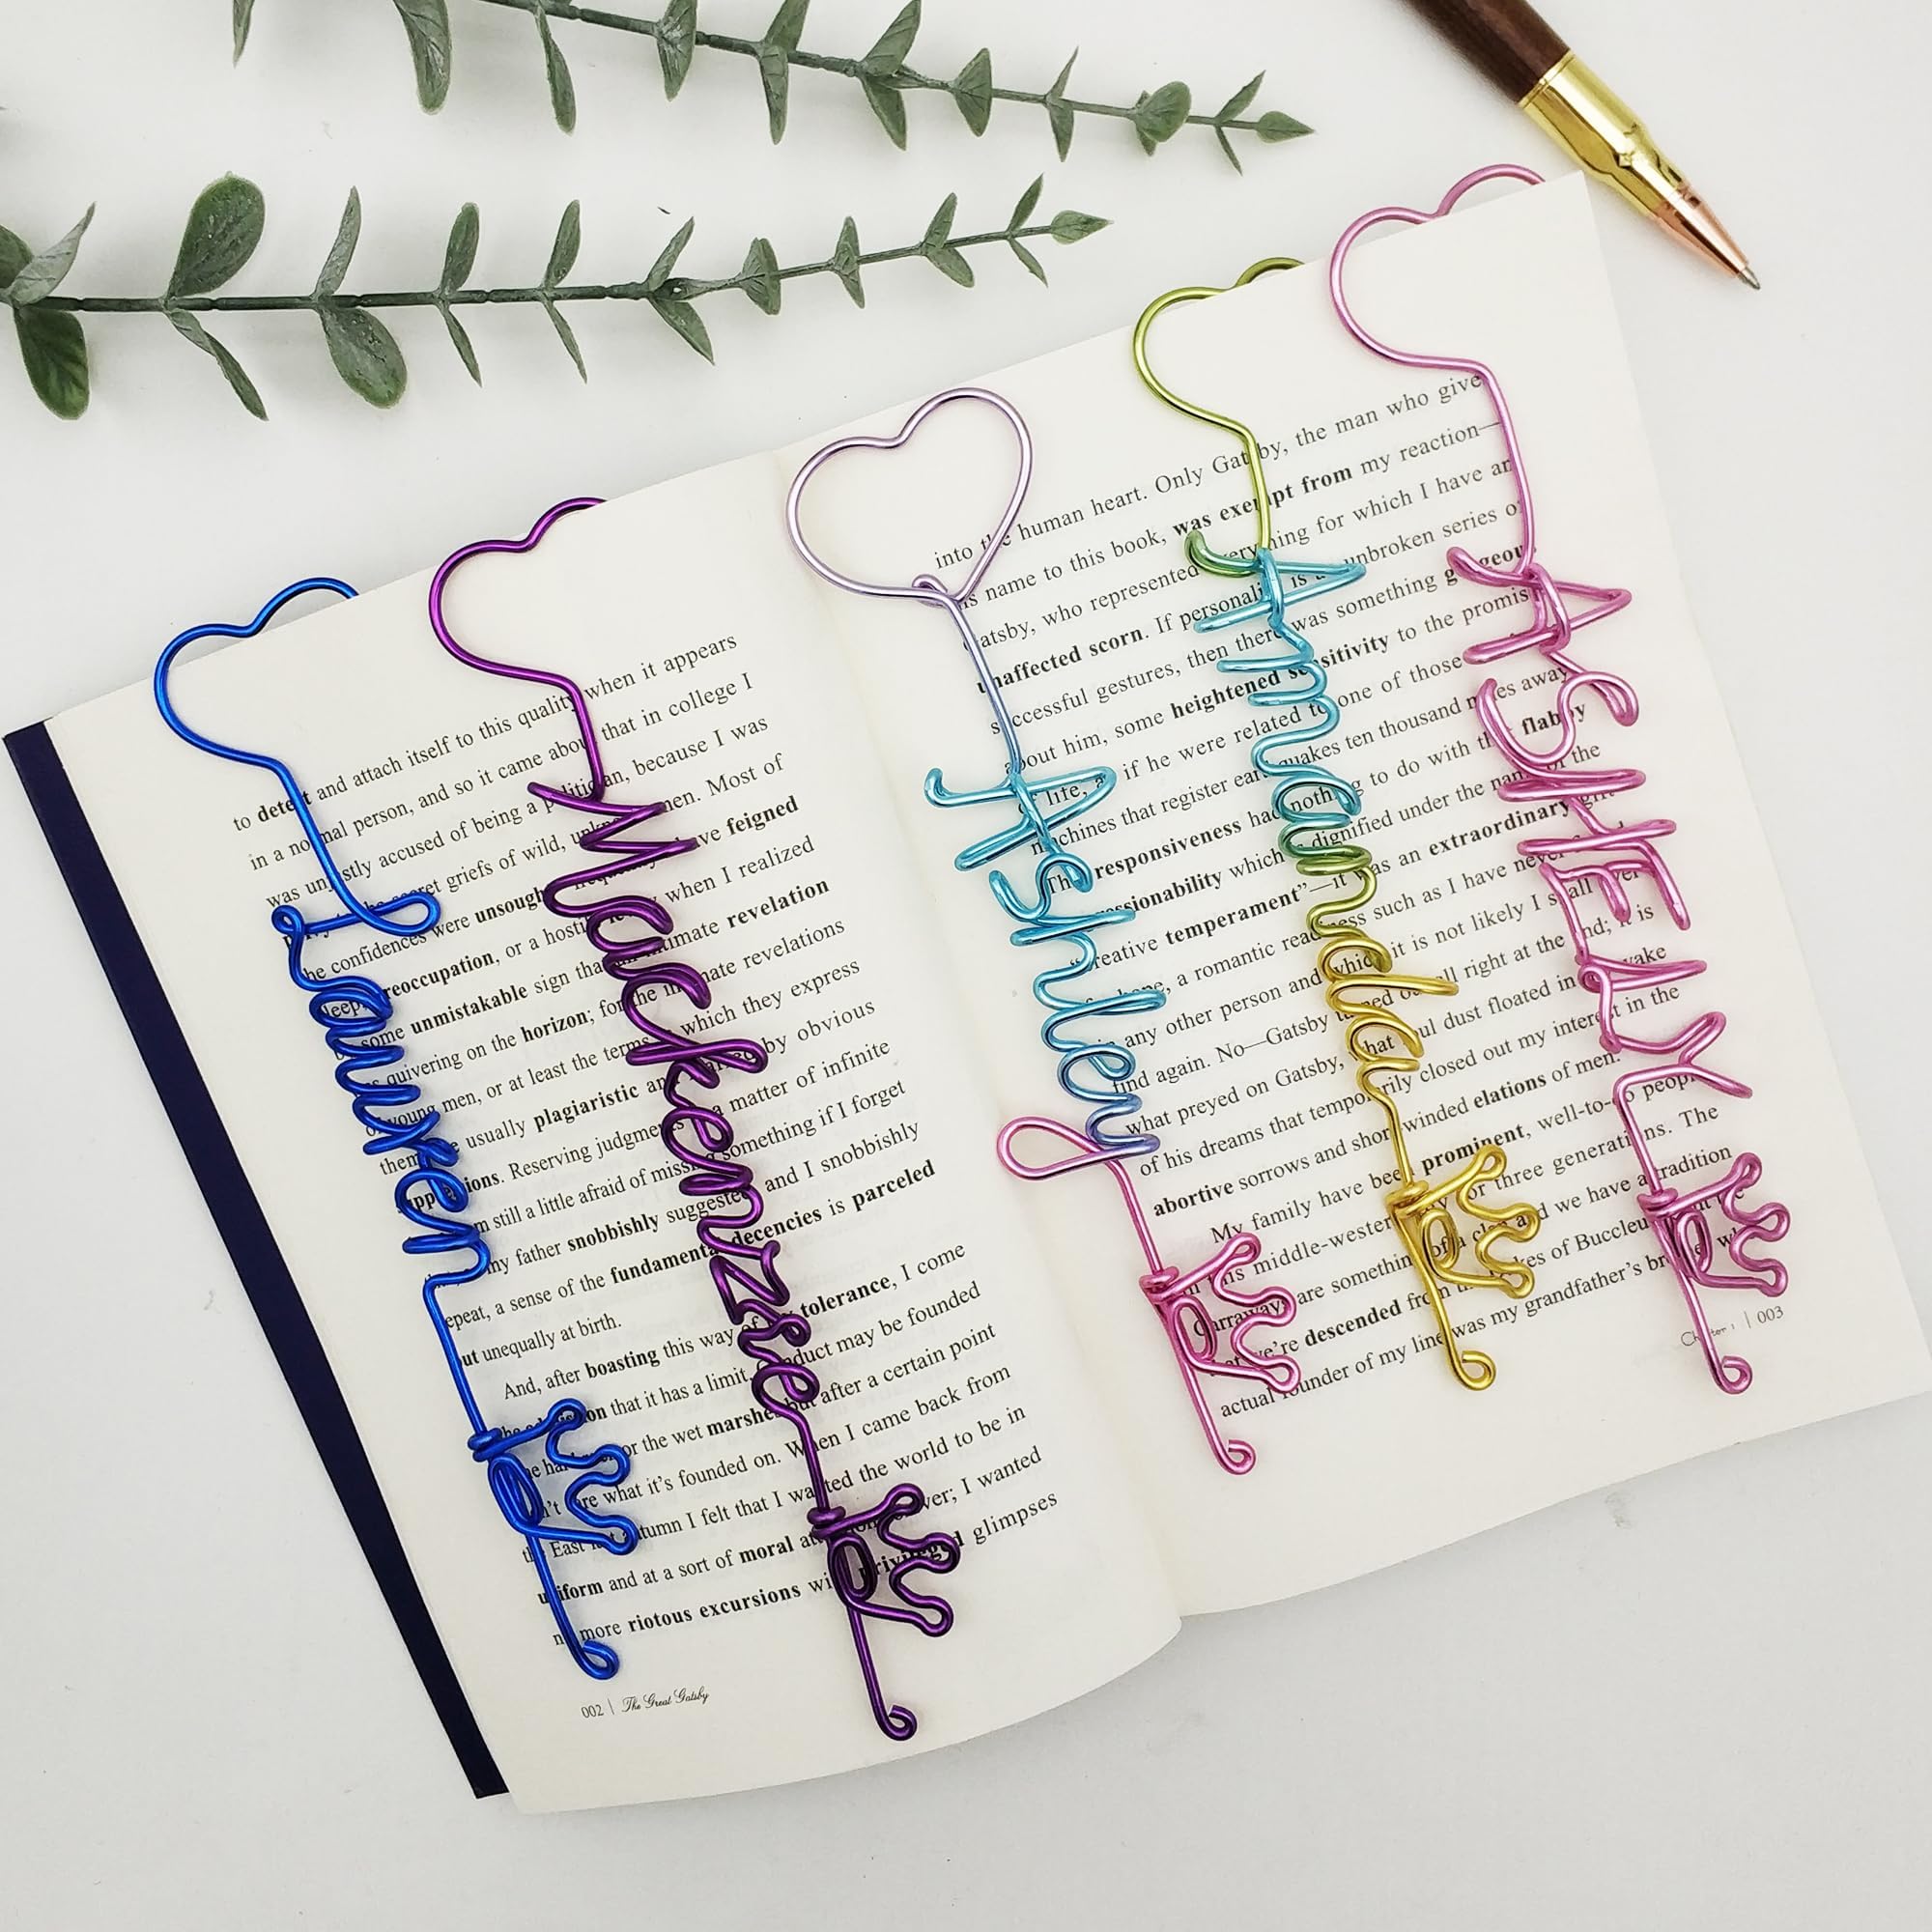 Lauren
Mackenzie
Ashley
Amanda
ASHELY
when it appears
to detect and attach itself to this quality
that in college I
in a normal person, and so it came about
was unjustly accused of being a politician, because I was
griefs of wild,
men. Most of
the confidences were unsought
have feigned
preoccupation, or a
when I realized
some unmistakable sign that
intimate revelation
quivering on the horizon; for the intimate revelations
young men, or at least the terms
which they express
usually plagiaristic and
by obvious
suppressions. Reserving judgments
a matter of infinite
still a little afraid of missing something if I forget
my father snobbishly suggested, and I snobbishly
repeat, a sense of the fundamental decencies is parceled
out unequally at birth.
And, after boasting this way of my tolerance, I come
that it has a limit. Conduct may be founded
or the wet marshes but after a certain point
what it's founded on. When I came back from
the East last autumn I felt that I wanted the world to be in
uniform and at a sort of moral
ver; I wanted
no more riotous excursions with privileged glimpses
002 | The Great Gatsby
into the human heart. Only Gatsby, the man who give
his name to this book, was exempt from my reaction—
Gatsby, who represented everything for which I have an
unaffected scorn. If personality is an unbroken series of
successful gestures, then there was something gorgeous
about him, some heightened sensitivity to the promis
life, as if he were related to one of those
machines that register earthquakes ten thousand miles away.
This responsiveness had nothing to do with that flabby
impressionability which is dignified under the name of the
"creative temperament"—it was an extraordinary gift
hope, a romantic readiness such as I have never found
in any other person and which it is not likely I shall ever
find again. No—Gatsby turned out all right at the end; it is
what preyed on Gatsby, what foul dust floated in the wake
of his dreams that temporarily closed out my interest in the
abortive sorrows and short-winded elations of men.
My family have been prominent, well-to-do people
this middle-western city for three generations. The
Carraways are something of a clan and we have a tradition
that we're descended from the Dukes of Buccleuch, but the
actual founder of my line was my grandfather's brother, wh
Chapter 1 | 003